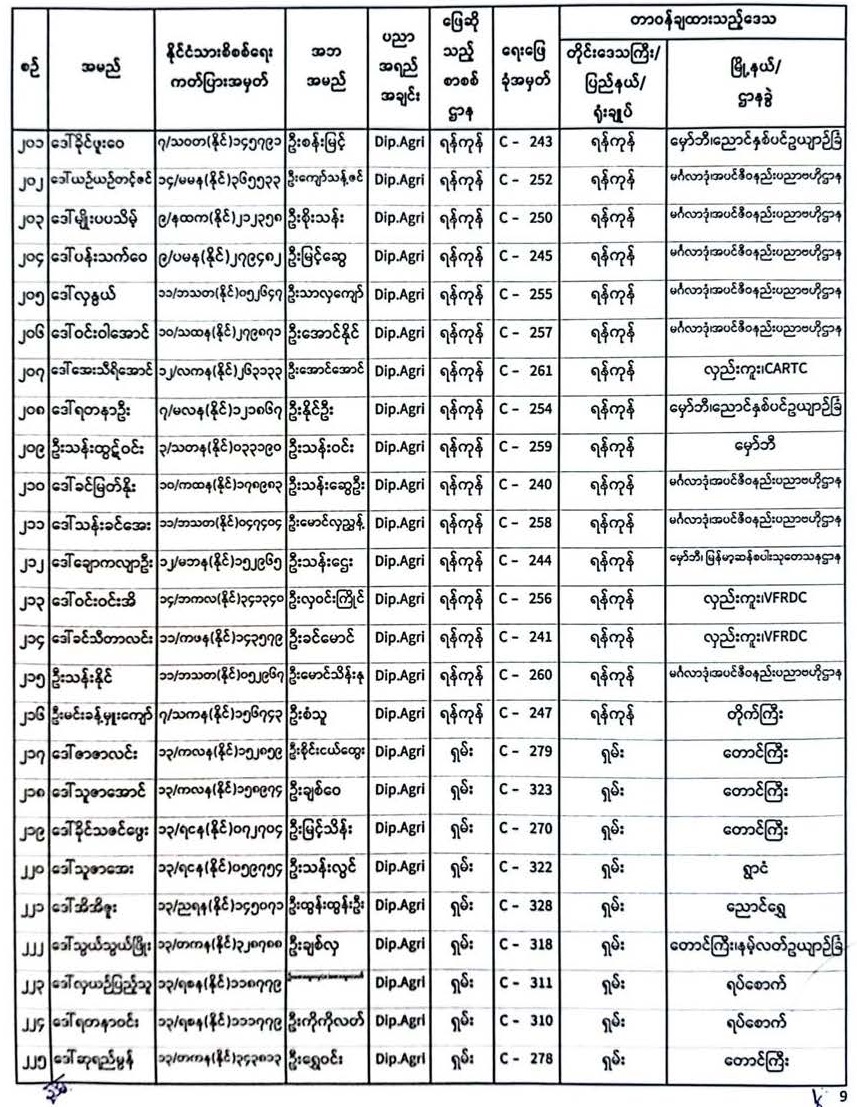 စဉ် အမည် နိုင်ငံသားစိစစ်ရေး ကတ်ပြားအမှတ် အဘ အမည် ပညာ အရည် အချင်း ဖြေဆို သည့် စာစစ် ဌာန ရေးဖြေ ခုံအမှတ် တာဝန်ချထားသည့်ဒေသ
တိုင်းဒေသကြီး/ ပြည်နယ်/ ရုံးချုပ် မြို့နယ်/ ဌာနခွဲ
၂၀၁ ဒေါ်ခိုင်ဖူးဝေ ၇/သဝတ(နိုင်)၁၄၅၇၉၁ ဦးစန်းမြင့် Dip.Agri ရန်ကုန် C - 243 ရန်ကုန် မှော်ဘီ၊ညောင်နှစ်ပင်ဥယျာဉ်ခြံ
၂၀၂ ဒေါ်ယဉ်ယဉ်တင့်ဇင် ၁၄/မမန(နိုင်)၃၆၅၅၃၃ ဦးကျော်သန့်ဇင် Dip.Agri ရန်ကုန် C - 252 ရန်ကုန် မင်္ဂလာဒုံ၊အပင်ဇီဝနည်းပညာဗဟိုဌာန
၂၀၃ ဒေါ်မျိုးပပသိမ့် ၉/နထက(နိုင်)၂၁၂၃၅၈ ဦးစိုးသန်း Dip.Agri ရန်ကုန် C - 250 ရန်ကုန် မင်္ဂလာဒုံ၊အပင်ဇီဝနည်းပညာဗဟိုဌာန
၂၀၄ ဒေါ်ပန်းသက်ဝေ ၉/ပမန(နိုင်)၂၇၉၄၈၂ ဦးမြင့်ဆွေ Dip.Agri ရန်ကုန် C - 245 ရန်ကုန် မင်္ဂလာဒုံ၊အပင်ဇီဝနည်းပညာဗဟိုဌာန
၂၀၅ ဒေါ်လှနွယ် ၁၁/ဘသတ(နိုင်)၀၅၂၆၄၇ ဦးသာလှကျော် Dip.Agri ရန်ကုန် C - 255 ရန်ကုန် မင်္ဂလာဒုံ၊အပင်ဇီဝနည်းပညာဗဟိုဌာန
၂၀၆ ဒေါ်ဝင်းဝါအောင် ၁၀/သထန(နိုင်)၂၇၉၈၇၁ ဦးအောင်နိုင် Dip.Agri ရန်ကုန် C - 257 ရန်ကုန် မင်္ဂလာဒုံ၊အပင်ဇီဝနည်းပညာဗဟိုဌာန
၂၀၇ ဒေါ်အေးသီရိအောင် ၁၂/လကန(နိုင်)၂၆၃၁၃၃ ဦးအောင်အောင် Dip.Agri ရန်ကုန် C - 261 ရန်ကုန် လှည်းကူး၊CARTC
၂၀၈ ဒေါ်ရတနာဦး ၇/မလန(နိုင်)၁၂၁၈၆၇ ဦးနိုင်ဦး Dip.Agri ရန်ကုန် C - 254 ရန်ကုန် မှော်ဘီ၊ညောင်နှစ်ပင်ဥယျာဉ်ခြံ
၂၀၉ ဦးသန်းထွဋ်ဝင်း ၃/သတန(နိုင်)၀၃၃၁၉၀ ဦးသန်းဝင်း Dip.Agri ရန်ကုန် C - 259 ရန်ကုန် မှော်ဘီ
၂၁၀ ဒေါ်ခင်မြတ်နိုး ၁၀/ကထန(နိုင်)၁၇၈၉၈၃ ဦးသန်းဆွေဦး Dip.Agri ရန်ကုန် C - 240 ရန်ကုန် မင်္ဂလာဒုံ၊အပင်ဇီဝနည်းပညာဗဟိုဌာန
၂၁၁ ဒေါ်သန်းခင်အေး ၁၁/ဘသတ(နိုင်)၀၄၇၄၀၄ ဦးမောင်လှညွန့် Dip.Agri ရန်ကုန် C - 258 ရန်ကုန် မင်္ဂလာဒုံ၊အပင်ဇီဝနည်းပညာဗဟိုဌာန
၂၁၂ ဒေါ်ချောကလျာဦး ၁၂/မဘန(နိုင်)၁၅၂၉၆၅ ဦးသန်းဌေး Dip.Agri ရန်ကုန် C - 244 ရန်ကုန် မှော်ဘီ၊ မြန်မာ့ဆန်စပါးသုတေသနဌာန
၂၁၃ ဒေါ်ဝင်းဝင်းအိ ၁၄/ဘကလ(နိုင်)၃၄၁၃၄၀ ဦးလှဝင်းကြိုင် Dip.Agri ရန်ကုန် C - 256 ရန်ကုန် လှည်းကူး၊VFRDC
၂၁၄ ဒေါ်ခင်သီတာလင်း ၁၁/ကဖန(နိုင်)၁၄၃၅၇၉ ဦးခင်မောင် Dip.Agri ရန်ကုန် C - 241 ရန်ကုန် လှည်းကူး၊VFRDC
၂၁၅ ဦးသန်းနိုင် ၁၁/ဘသတ(နိုင်)၀၅၂၉၆၇ ဦးမောင်သိန်းနု Dip.Agri ရန်ကုန် C - 260 ရန်ကုန် မင်္ဂလာဒုံ၊အပင်ဇီဝနည်းပညာဗဟိုဌာန
၂၁၆ ဦးမင်းခန့်မှူးကျော် ၇/သကန(နိုင်)၁၅၆၇၄၃ ဦးစံသူ Dip.Agri ရန်ကုန် C - 247 ရန်ကုန် တိုက်ကြီး
၂၁၇ ဒေါ်ဇာဇာလင်း ၁၃/ကလန(နိုင်)၁၅၂၈၅၉ ဦးစိုင်းငယ်ထွေး Dip.Agri ရှမ်း C - 279 ရှမ်း တောင်ကြီး
၂၁၈ ဒေါ်သူဇာအောင် ၁၃/ကလန(နိုင်)၁၅၈၉၇၄ ဦးချစ်ဝေ Dip.Agri ရှမ်း C - 323 ရှမ်း တောင်ကြီး
၂၁၉ ဒေါ်ခိုင်သဇင်မွေး ၁၃/ရငန(နိုင်)၀၇၂၇၀၄ ဦးမြင့်သိန်း Dip.Agri ရှမ်း C - 270 ရှမ်း တောင်ကြီး
၂၂၀ ဒေါ်သူဇာအေး ၁၃/ရငန(နိုင်)၀၅၉၇၅၄ ဦးသန်းလွင် Dip.Agri ရှမ်း C - 322 ရှမ်း ရွာငံ
၂၂၁ ဒေါ်အိအိဇူး ၁၃/ညရန(နိုင်)၁၄၅၀၇၁ ဦးထွန်းထွန်းဦး Dip.Agri ရှမ်း C - 328 ရှမ်း ညောင်ရွှေ
၂၂၂ ဒေါ်သွယ်သွယ်ဖြိုး ၁၃/တကန(နိုင်)၃၂၈၇၈၈ ဦးချစ်လှ Dip.Agri ရှမ်း C - 318 ရှမ်း တောင်ကြီး၊နမ့်လတ်ဥယျာဉ်ခြံ
၂၂၃ ဒေါ်လှယဉ်ပြည့်သူ ၁၃/ရစန(နိုင်)၁၁၈၇၇၉ Dip.Agri ရှမ်း C - 311 ရှမ်း ရပ်စောက်
၂၂၄ ဒေါ်ရတနာဝင်း ၁၃/ရစန(နိုင်)၁၁၁၇၇၉ ဦးကိုကိုလတ် Dip.Agri ရှမ်း C - 310 ရှမ်း ရပ်စောက်
၂၂၅ ဒေါ်ဆုရည်မွန် ၁၃/တကန(နိုင်)၃၄၃၈၁၃ ဦးရွှေဝင်း Dip.Agri ရှမ်း C - 278 ရှမ်း တောင်ကြီး
9